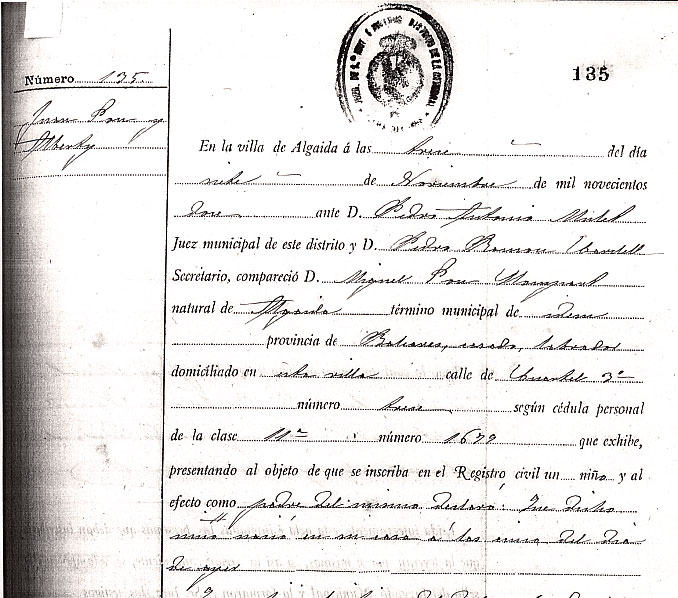 135
Número 135
Juan Pou y
Alberty
En la villa de Algaida á las trece del día
siete de Noviembre de mil novecientos
doce ante D. Pedro Antonio Mulet
Juez municipal de este distrito y D. Pedro Ramon
Secretario, compareció D. Miguel Pou
natural de Algaida término municipal de idem
provincia de Baleares, casado, labrador
domiciliado en esta villa calle de Cuartel 3º
número trece según cédula personal
de la clase 11ª número 1672 que exhibe,
presentando al objeto de que se inscriba en el Registro civil un niño y al
efecto como padre del mismo declaró: Que dicho
niño nació en su casa á las cinco del dia
de ayer